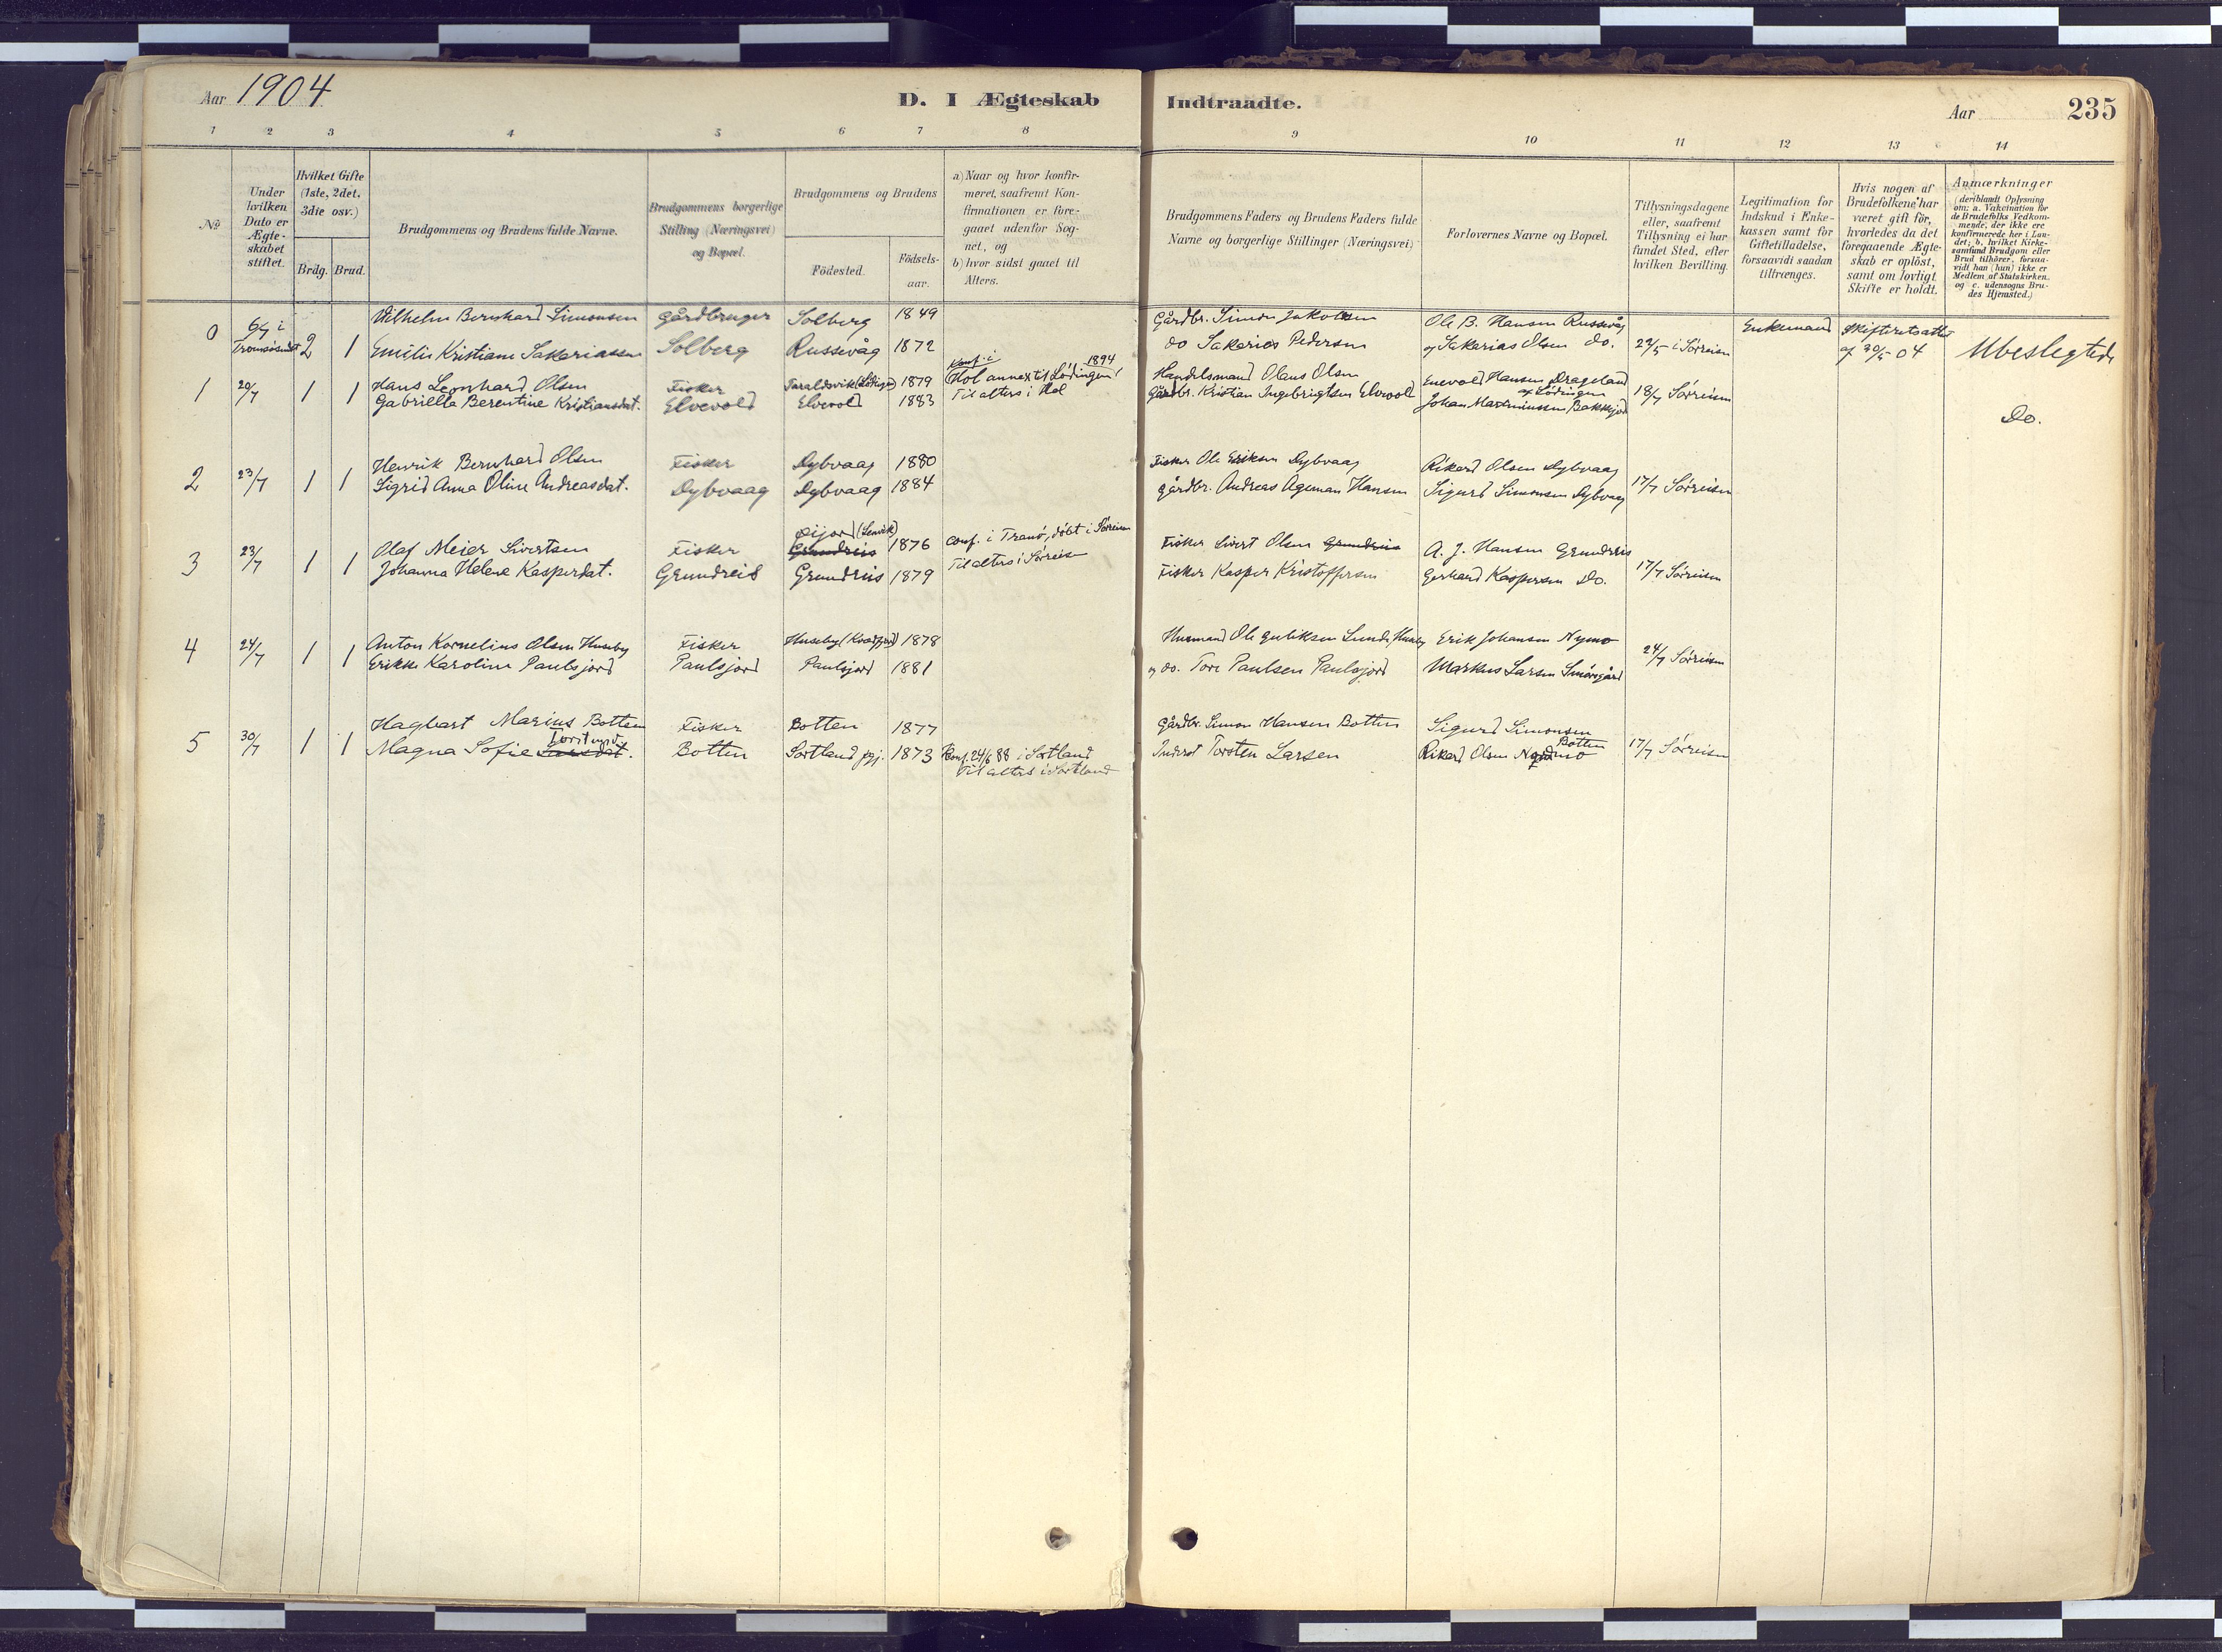 Aar 1904
D. I Ægteskab Indtraadte.
Aar 235
1 2 3 4 5 6 7 8 9 10 11 12 13 14
No
Under hvilken Dato er Ægteskabet stiftet.
Hvilket Gifte (1ste, 2det, 3die osv.)
Brdg. Brud.
Brudgommens og Brudens fulde Navne.
Brudgommens borgerlige Stilling (Næringsvei) og Bopæl.
Brudgommens og Brudens
Födested. Födsels-aar.
a) Naar og hvor konfirmeret, saafremt Konfirmationen er foregaaet udenfor Sognet, og
b) hvor sidst gaaet til Alters.
Brudgommens Faders og Brudens Faders fulde Navne og borgerlige Stillinger (Næringsvei)
Forlovernes Navne og Bopæl.
Tillysningsdagene eller, saafremt Tillysning ei har fundet Sted, efter hvilken Bevilling.
Legitimation for Indskud i Enkekassen samt for Giftetilladelse, forsaavidt saadan tiltrænges.
Hvis nogen af Brudefolkene har været gift för, hvorledes da det foregaaende Ægteskab er oplöst, samt om lovligt Skifte er holdt.
Anmærkninger
(deriblandt Oplysning om: a. Vakcination for de Brudefolks Vedkommende, der ikke ere konfirmerede her i Landet; b. hvilket Kirkesamfund Brudgom eller Brud tilhörer, forsaavidt han (hun) ikke er Medlem af Statskirken, og c. udensogns Brudes Hjemsted.)
0 6/7 i Tromsösund 2 1 Vilhelm Bernhard Simonsen gårdbruger Solberg 1849 Gårdbr. Simon Jakobsen Ole B. Hansen Russevåg 29/5 i Sörreisen Enkemand Skifteretsattest Ubeslegtede
Emilie Kristiane Sakariassen Solberg Russevåg 1872 do Sakarias Pedersen og Sakarias Olsen do. af 30/5 04
1 20/7 1 1 Hans Leonhard Olsen Fisker Taraldsvik (Lödingen) 1879 Konf. i Hol annex til Lödingen 1894 Handelsmand Olaus Olsen Enevold Hansen Drageland af Lödingen 18/7 Sörreisen Do.
Gabriella Berentine Kristiansdat. Elvevold Elvevold 1883 Til alters i Hol Gårdbr. Kristian Ingebrigtsen Elvevold Johan Martinussen Bakkejord
2 23/7 1 1 Henrik Bernhard Olsen Fisker Dybvaag 1880 Fisker Ole Eriksen Dybvaag Rikard Olsen Dybvaag 17/7 Sörreisen
Sigrid Anna Oline Andreasdat. Dybvaag Dybvaag 1884 gårdbr. Andreas Ageman Hansen Sigurd Simonsen Dybvaag
3 23/7 1 1 Olaf Meier Sivertsen Fisker Gijord (Lenvik) Grundreis 1876 Conf. i Tranö, döbt i Sörreisen Fisker Sivert Olsen Grundreis A. J. Hansen Grundreis 17/7 Sörreisen
Johanna Helene Kasperdat. Grundreis Grundreis 1879 Til alters i Sörreisen Fisker Kasper Kristoffersen Gerhard Kaspersen Do.
4 24/7 1 1 Anton Kornelius Olsen Huseby Fisker Huseby (Kvæfjord) 1878 Husmand Ole Guliksen Lunde, Huseby Erik Johansen Nymo 24/7 Sörreisen
Erikka Karoline Paulsjord Paulsjord Paulsjord 1881 do. Tore Paulsen Paulsjord Markus Larsen Smörsgård
5 30/7 1 1 Hagbart Marius Botten Fisker Botten 1877 Gårdbr. Simon Hansen Botten Sigurd Simonsen Botten 17/7 Sörreisen
Magna Sofie Larsdat. Botten Sortland pgj. 1873 Konf. 24/6 88 i Sortland Inderst Torsten Larsen Rikard Olsen Nordmo
Til alters i Sortland